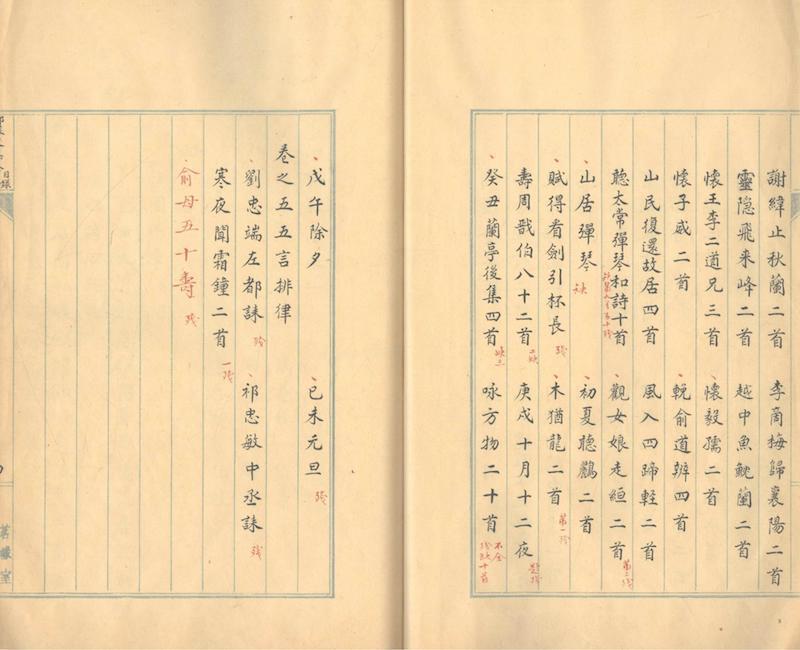 謝緯止秋蘭二首 李商梅歸襄陽二首
靈隐飛来峰二首 越中魚魫蘭二首
懷王李二道兄三首 懷毅孺二首
懷子戚二首 輓俞道辨四首
山民復還故居四首 風入四蹄輕二首
聽太常彈琴和詩十首 觀女娘走絙二首 第二殘
山居彈琴 缺 初夏聽鸝二首
賦得看劍引杯長 殘 木猶龍二首 第一殘
壽周戩伯八十二首 二缺 庚戌十月十二夜 題殘
癸丑蘭亭後集四首 缺三 咏方物二十首 不全
戊午除夕 已未元旦 殘
卷之五五言排律
劉忠端左都誄 殘 祁忠敏中丞誄 殘
寒夜聞霜鐘二首 一殘
俞母五十壽 殘
目錄